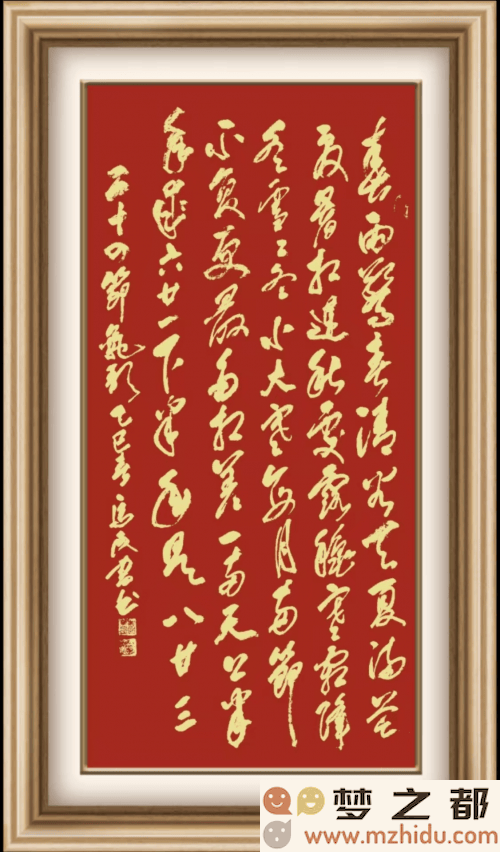 春雨驚春清谷天夏滿芒
夏暑相連秋處露秋寒霜降
冬雪雪冬小大寒每月兩節
不變更最多相差一兩天上半
年是六廿一下半年是八廿三
二十四節氣歌 乙巳春
梦之都
www.mzhidu.com